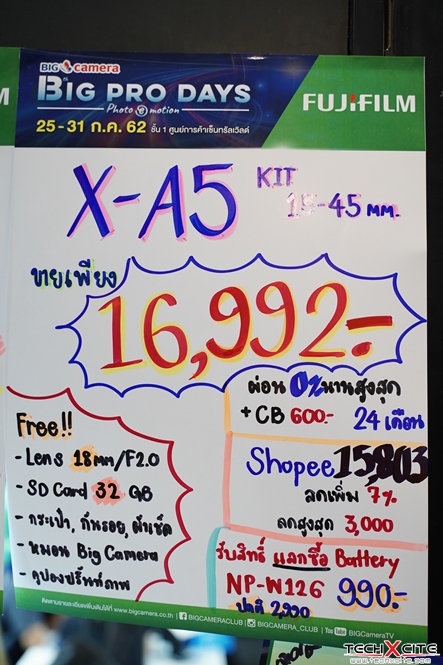 BIG camera
BIG PRO DAYS
Photo e motion
25-31 ก.ค. 62 ชั้น 1 ศูนย์การค้าเซ็นทรัลเวิลด์
FUJIFILM
X-A5 KIT
15-45 MM.
ขายเพียง
16,992.-
ผ่อน 0% นานสูงสุด
+ CB 600.- 24 เดือน
Free!!
- Lens 18mm/F2.0
- SD Card 32 GB
- กระเป๋า, กันรอย, ผ้าเช็ด
- หมอน Big Camera
- คูปองปริ้นท์ภาพ
Shopee 15,803
ลดเพิ่ม 7%
ลดสูงสุด 3,000
รับสิทธิ์ แลกซื้อ Battery
NP-W126 990.-
ปกติ 2,990
ติดตามรายละเอียดเพิ่มเติมได้ที่ www.bigcamera.co.th BIGCAMERACLUB BIGCAMERA_CLUB YouTube BIGCameraTV
TECHXCITE
www.techxcite.com